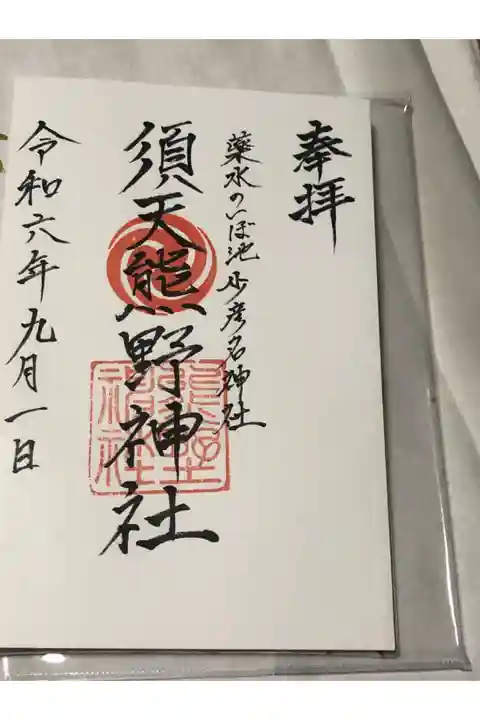 奉拝
薬水のいぼ池 少彦名神社
須天熊野神社
令和六年九月一日